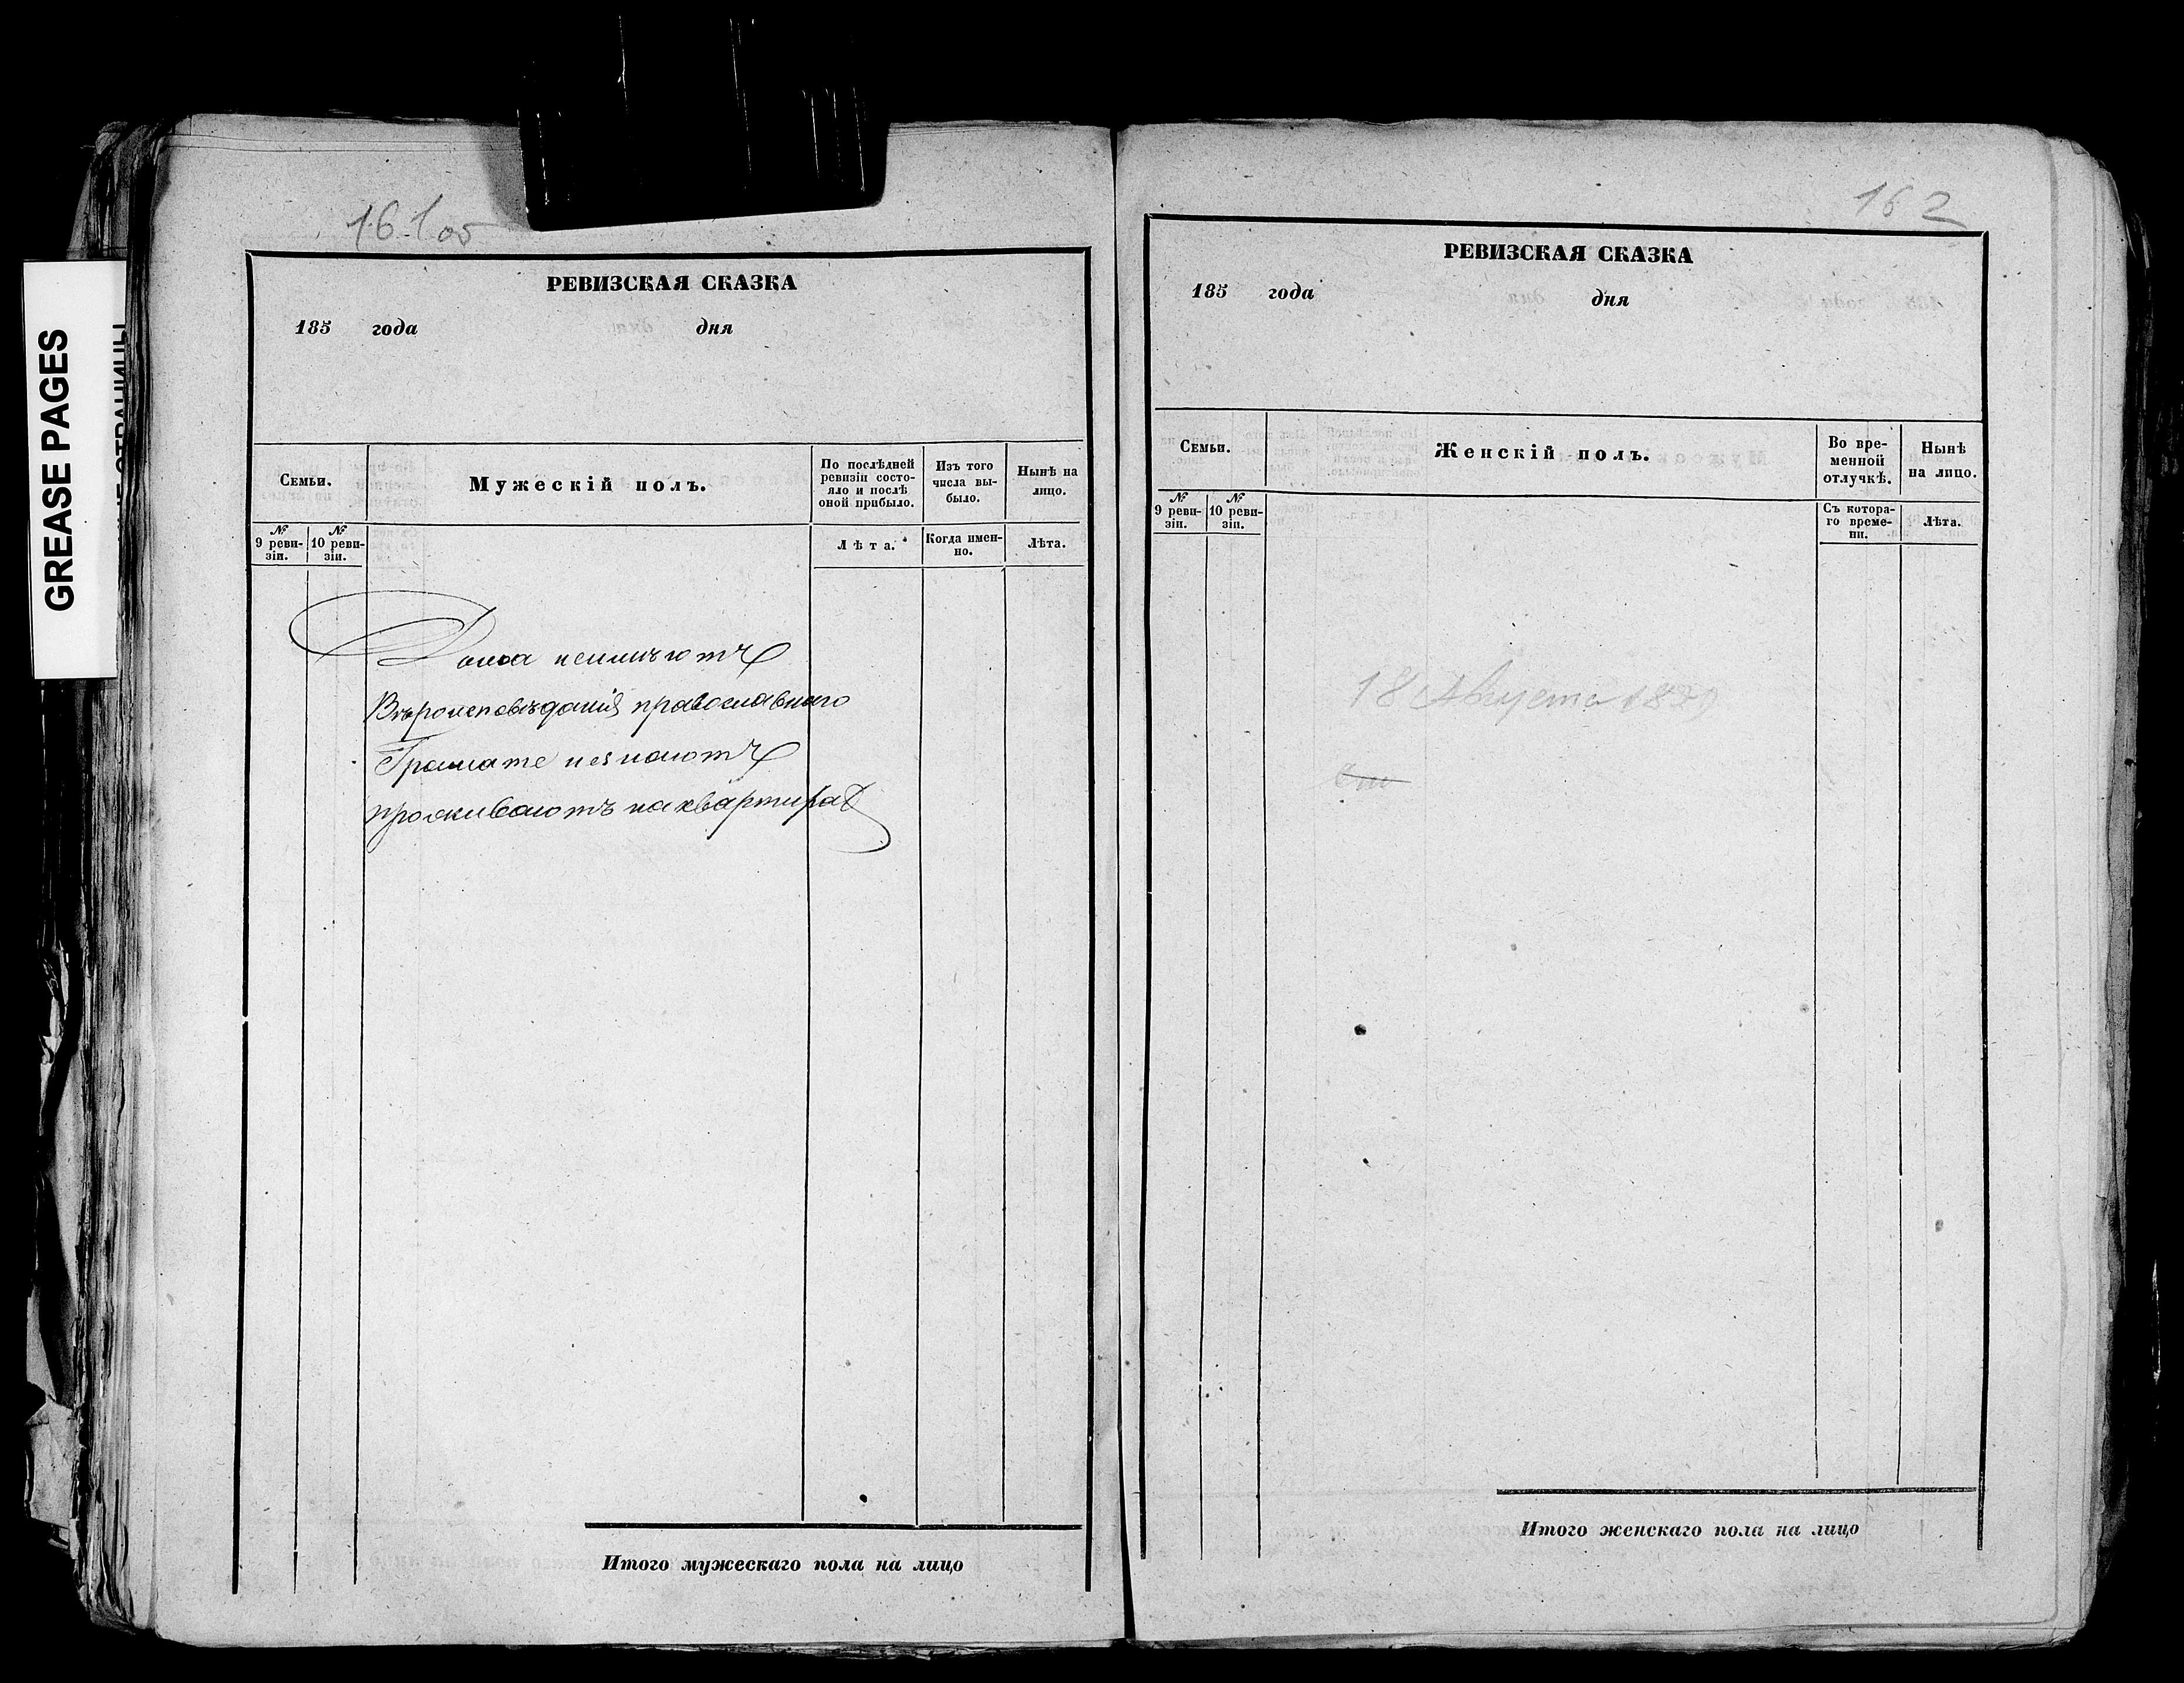 GREASE PAGES
161 об
РЕВИЗСКАЯ СКАЗКА
185 года дня
Семьи.
Мужескій полъ.
По послѣдней ревизіи состо-
яло и послѣ
оной прибыло.
Изъ того
числа вы-
было.
Нынѣ на
лицо.
№
9 реви-
зіи.
№
10 реви-
зіи.
Лѣта.
Когда имен-
но.
Лѣта.
Дома неимѣютъ
Вѣроисповѣданія православнаго
Грамате незнаютъ
проживаютъ на квартирах
Итого мужескаго пола на лицо
162
РЕВИЗСКАЯ СКАЗКА
185 года дня
Семьи.
Женскій полъ.
Во вре-
менной
отлучкѣ.
Нынѣ
на лицо.
№
9 реви-
зіи.
№
10 реви-
зіи.
Съ котора-
го време-
ни.
Лѣта.
18 Августа
Итого женскаго пола на лицо